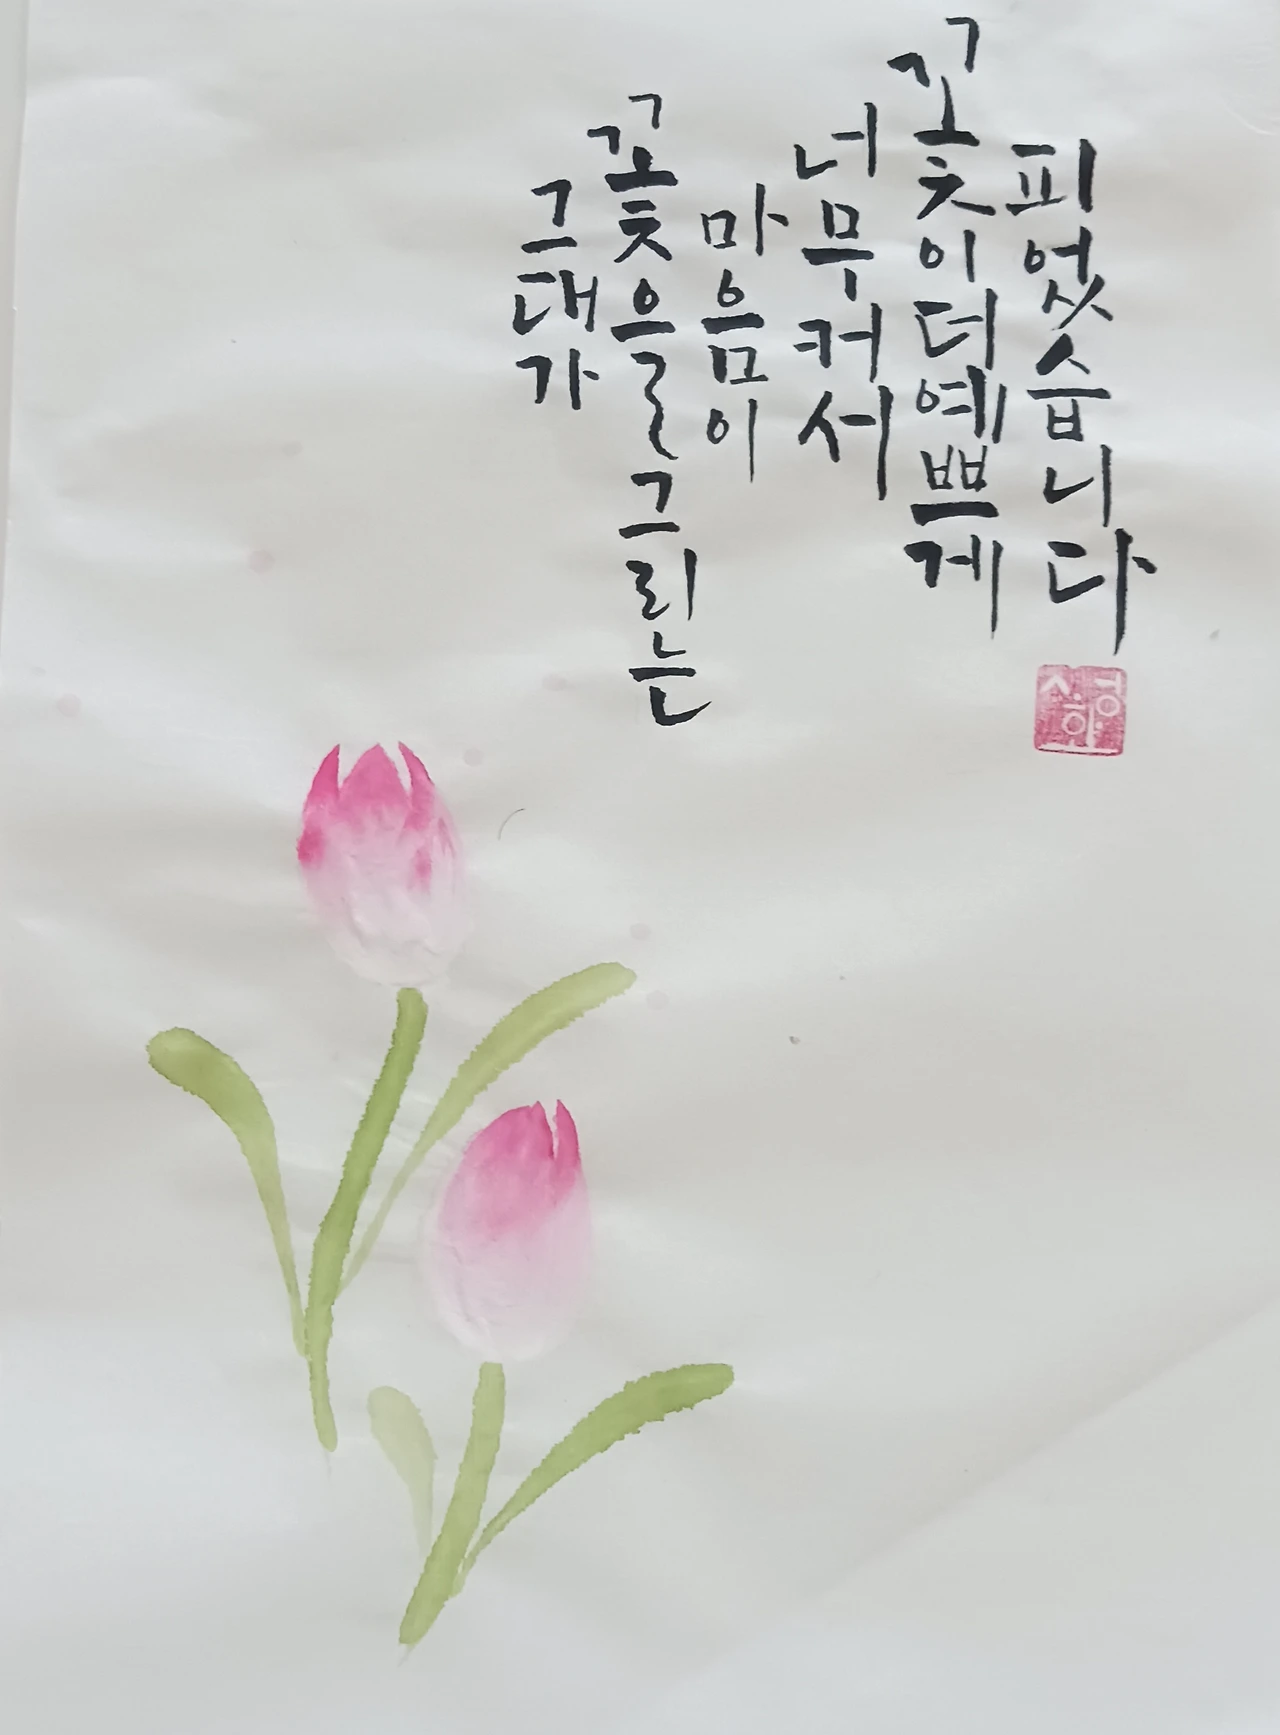 그대가
꽃을 그리는
마음이
너무 커서
꽃이 더 예쁘게
피었습니다